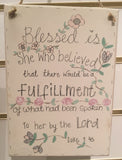 Blessed is
she who believed
that there would be a
Fulfillment
of what had been spoken
to her by the Lord